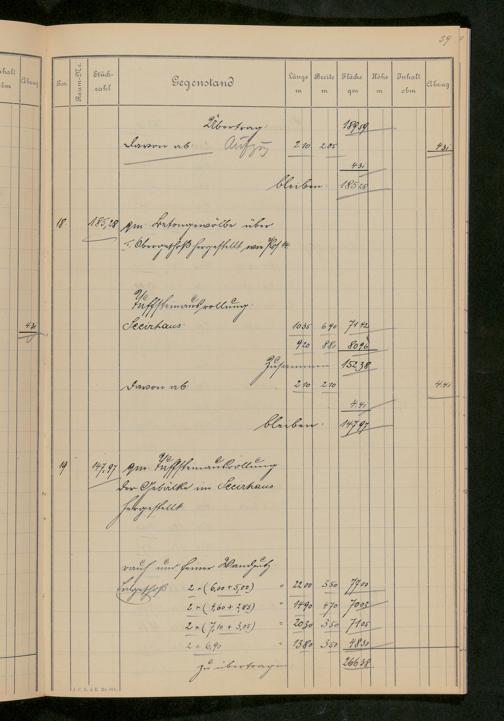 59
nhalt
cbm
Abzug
Pos.
Raum-No.
Stück-
zahl
Gegenstand
Länge
m
Breite
m
Fläche
qm
Höhe
m
Inhalt
cbm
Abzug
Übertrag 189 59
Davon ab Aufzug 2 10 2 05 4 31
4 31
bleiben 185 28
18 185,28 qm Betongewölbe über
Obergeschoß hergestellt, wie Pos 14
Tuffsteinausrollung
4 31
Secirhaus 10 35 6 90 71 42
9 20 8 80 80 96
Zusammen 152 38
Davon ab 2 10 2 10 4 41
4 41
bleiben 147 97
19 147,97 qm Tuffsteinausrollung
der Gebälke im Secirhaus
hergestellt
rauh und feiner Wandputz
2 × (6,00 + 5,00) = 22 00 3 50 77 00
2 × = 14 90 4 70 70 03
2 × (7,10 + 3,05) = 20 30 3 50 71 05
2 × 6,90 = 13 80 3 50 48 30
zu übertragen 266 38